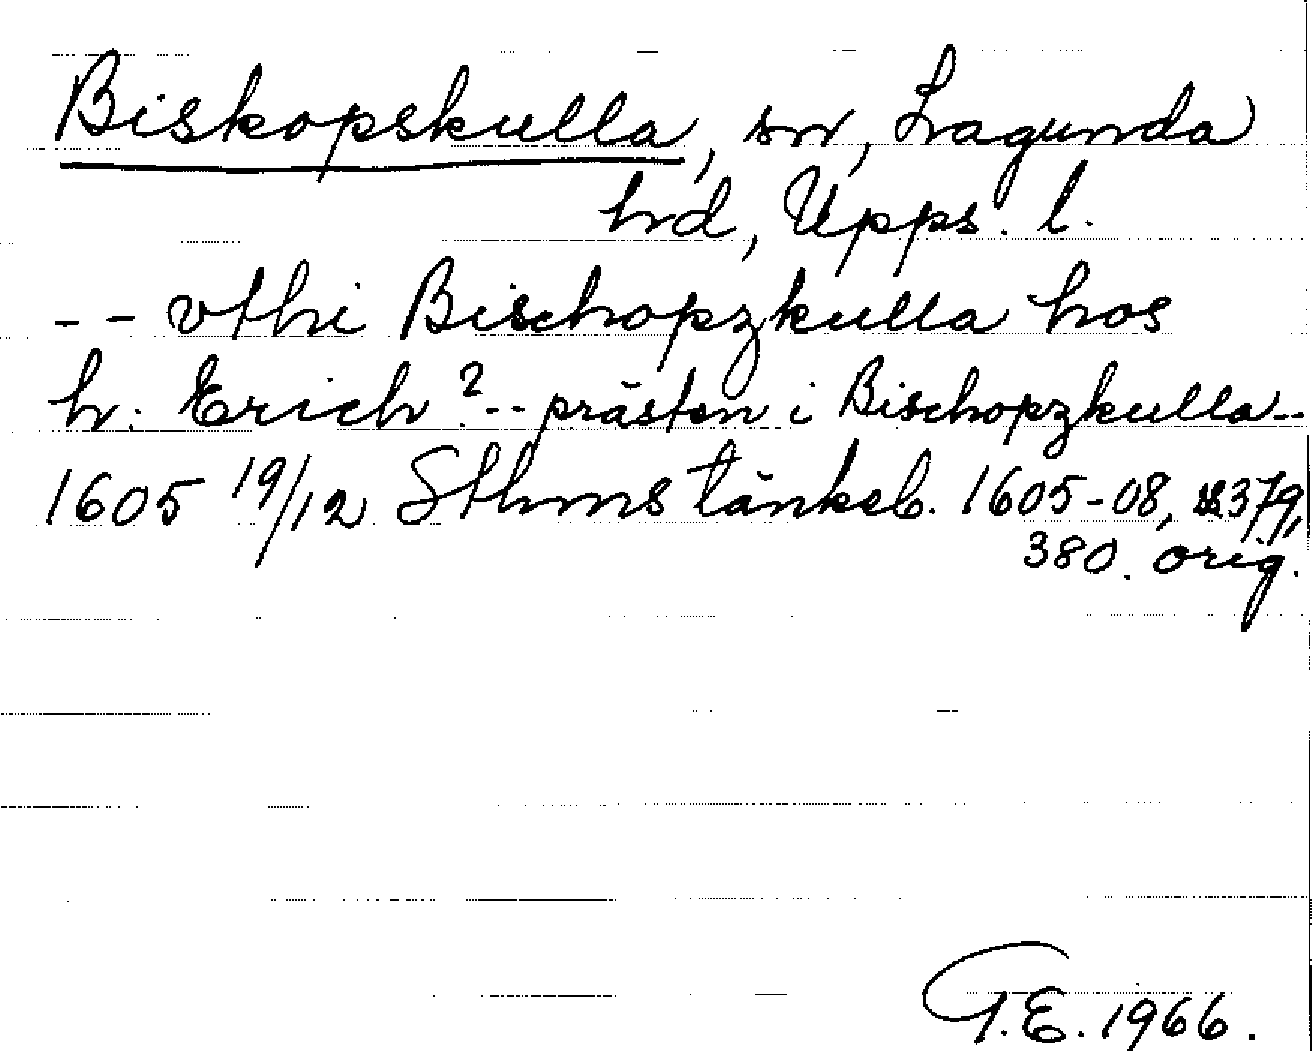 Biskopskulla, sn, Lagunda
hd, Upps. l.
-- vthi Bischopzkulla hos
h. Erich ?-- prästen i Bischopzkulla--
1605 19/12 Sthms tänkeb. 1605-08, s 379,
380. orig.
G.E. 1966.